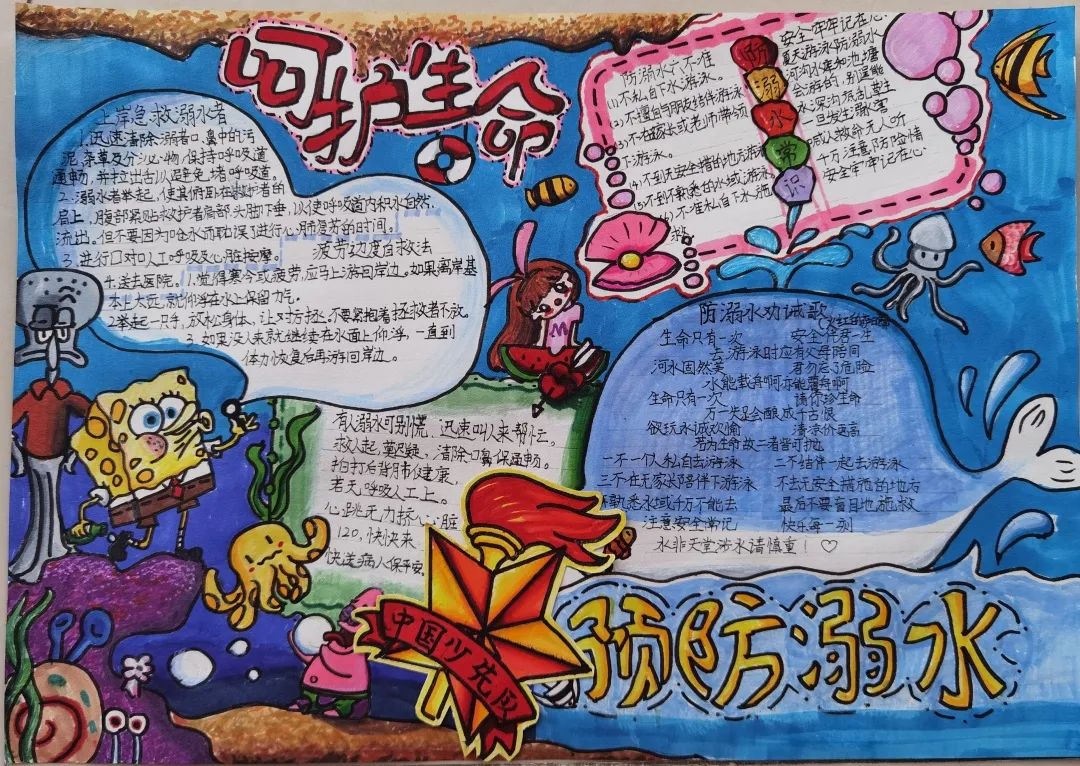 呵护生命
上岸急救溺水者
1.迅速清除溺者口、鼻中的污
泥、杂草及分泌物,保持呼吸道
通畅,并拉出舌头,以避免堵呼吸道。
2.溺水者举起,使其俯卧在救护者的
肩上,腹部紧贴救护者肩部,头脚下垂,以使呼吸道内积水自然
流出。但不要因为呛水而耽误了进行心肺复苏的时间。
3.进行口对口人工呼吸及心脏按摩。
疲劳过度自救法
4.送去医院。1.觉得寒冷或疲劳,应马上游回岸边。如果离岸基
本上太远,就仰浮在水上保留力气。
2.举起一只手,放松身体,让对方拯,不要紧抱着拯救者不放。
3.如果没人来就继续在水面上仰浮,一直到
体力恢复后再游回岸边。
防溺水六不准
(1)不私自下水游泳。
(2)不擅自与朋友结伴游泳
(3)不在家长或老师带领
下游泳。
(4)不到无安全措的地方游泳
(5)不到不熟悉的水域游泳
(6)不准私自下水施
救
防溺水常识
安全牢牢记在心
夏天游泳防溺水
河沟水库和池塘
会游的,别逞能
水深沟流乱草生
一旦发生溺水害
喊人救命无人听
千万注意防险情
安全牢牢记在心
防溺水劝诫歌
生命只有一次 安全伴君一生
去游泳时应有父母陪同
河水固然美 君勿忘了危险
水能载舟啊亦能覆舟啊
生命只有一次 请你珍生命
万一失足会酿成千古恨
欲玩水诚欢愉 清凉价更高
若为生命故二者皆可抛
一不一个人私自去游泳 二不结伴一起去游泳
三不在无家长陪伴下游泳 不去无安全措施的地方
不熟悉水域千万不能去 最后不要盲目地施救
注意安全常记 快乐每一刻
水非天堂涉水请慎重!♡
有人溺水可别慌,迅速叫人来帮忙。
救人起,莫迟疑,清除口鼻保通畅。
拍打后背用巾健康,
若无呼吸人工上。
心跳无力挤心脏
120,快快来,
快送病人保平安。
中国少先队
预防溺水